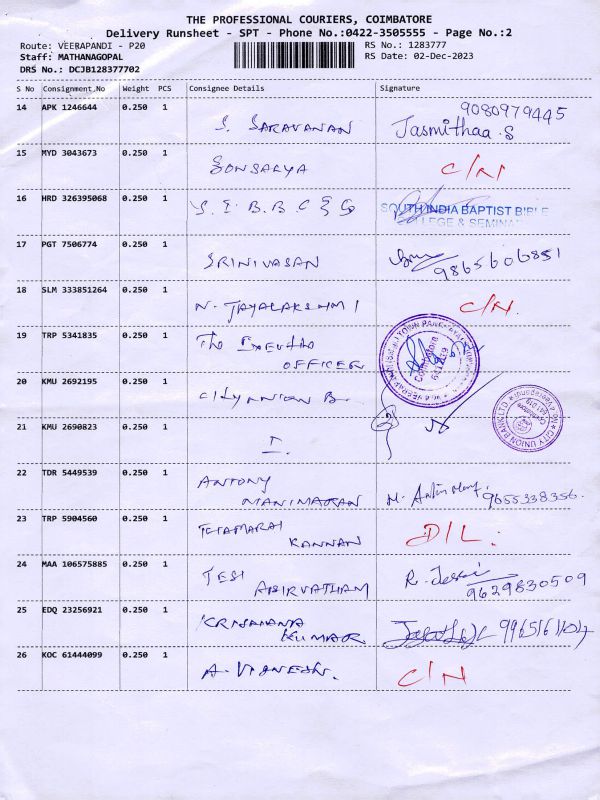 THE PROFESSIONAL COURIERS, COIMBATORE
Delivery Runsheet - SPT - Phone No.:0422-3505555 - Page No.:2
Route: VEERAPANDI - P20 RS No.: 1283777
Staff: MATHANAGOPAL RS Date: 02-Dec-2023
DRS No.: DCJB128377702
S No Consignment,No Weight PCS Consignee Details Signature
14 APK 1246644 0.250 1 S. SARAVANAN 9080979445
Jasmithaa.S
15 MYD 3043673 0.250 1 SONSARYA C/N
16 HRD 326395068 0.250 1 S.I.B.B.C & S SOUTH INDIA BAPTIST BIBLE
COLLEGE & SEMINA
17 PGT 7506774 0.250 1 SRINIVASAN 9865606851
18 SLM 333851264 0.250 1 N. JAYALAKSHMI C/N.
19 TRP 5341835 0.250 1 The
OFFICER
20 KMU 2692195 0.250 1 CITY UNION B.
21 KMU 2690823 0.250 1 CITY UNION BANK LTD
22 TDR 5449539 0.250 1 ANTONY
MANIMARAN 9655338356.
23 TRP 5904560 0.250 1 THAMARAI
KANNAN D/L.
24 MAA 106575885 0.250 1 R.
ASIRVATHAM 9629830509
25 EDQ 23256921 0.250 1 KRISHNANA
KUMAR
26 KOC 61444099 0.250 1 A. VIGNESH. C/N